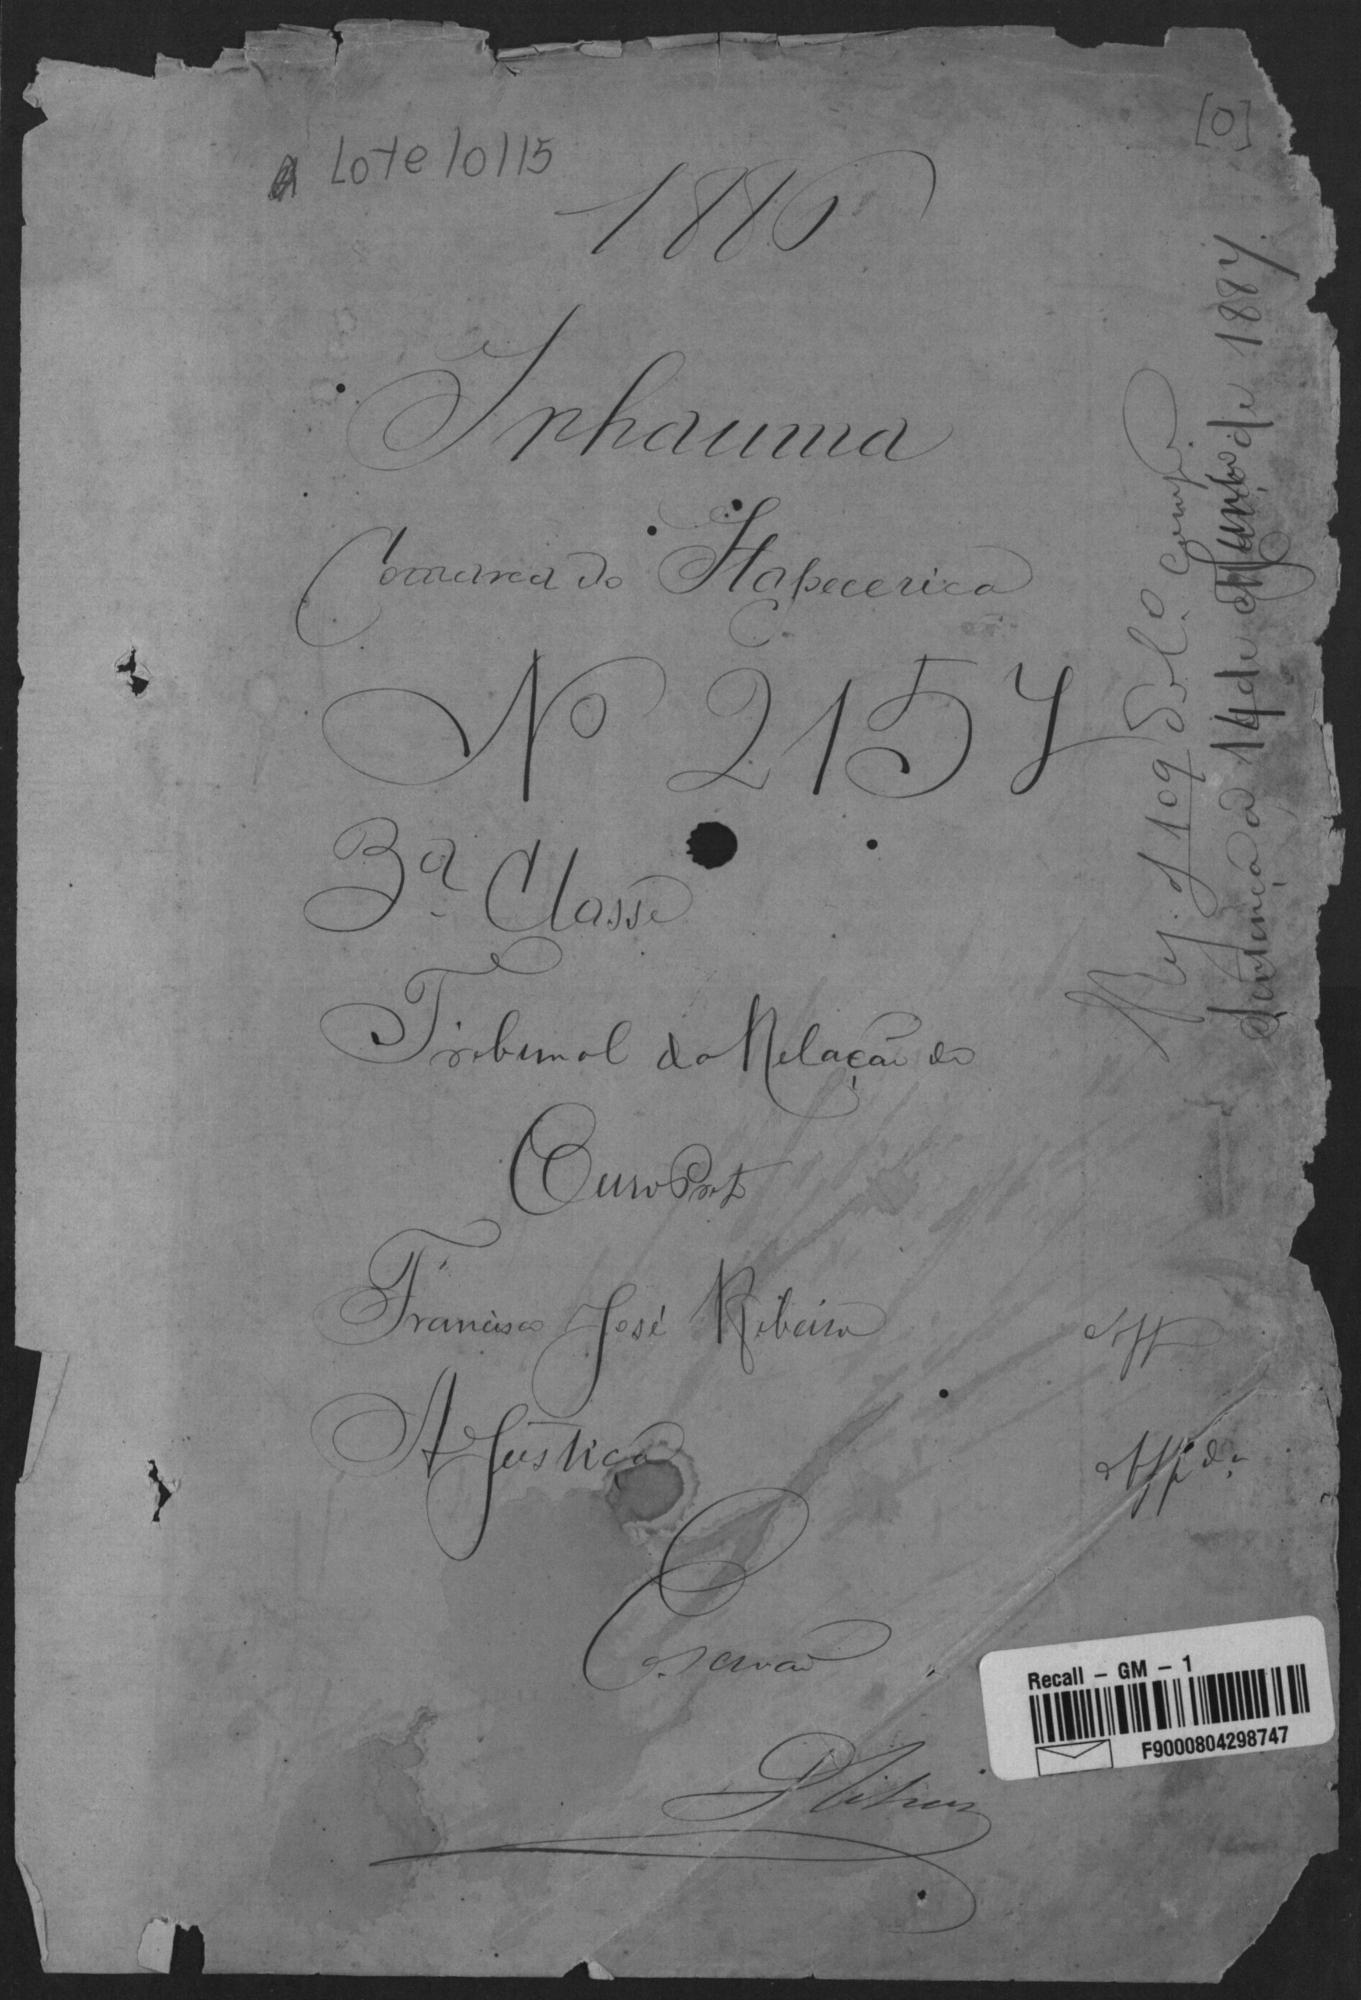 [0]
Lote 10115
1886
Inhauma
Comarca do Itapecerica
Nº 2157
3ª Classe
Tribunal da Relação do
Ouro Preto
Francisco José Ribeiro App
A Justiça Appda
Escrivão
Reg. f 109 do Lº Comp.
Sentença a 14 de Junho de 1887
Recall - GM - 1
F9000804298747